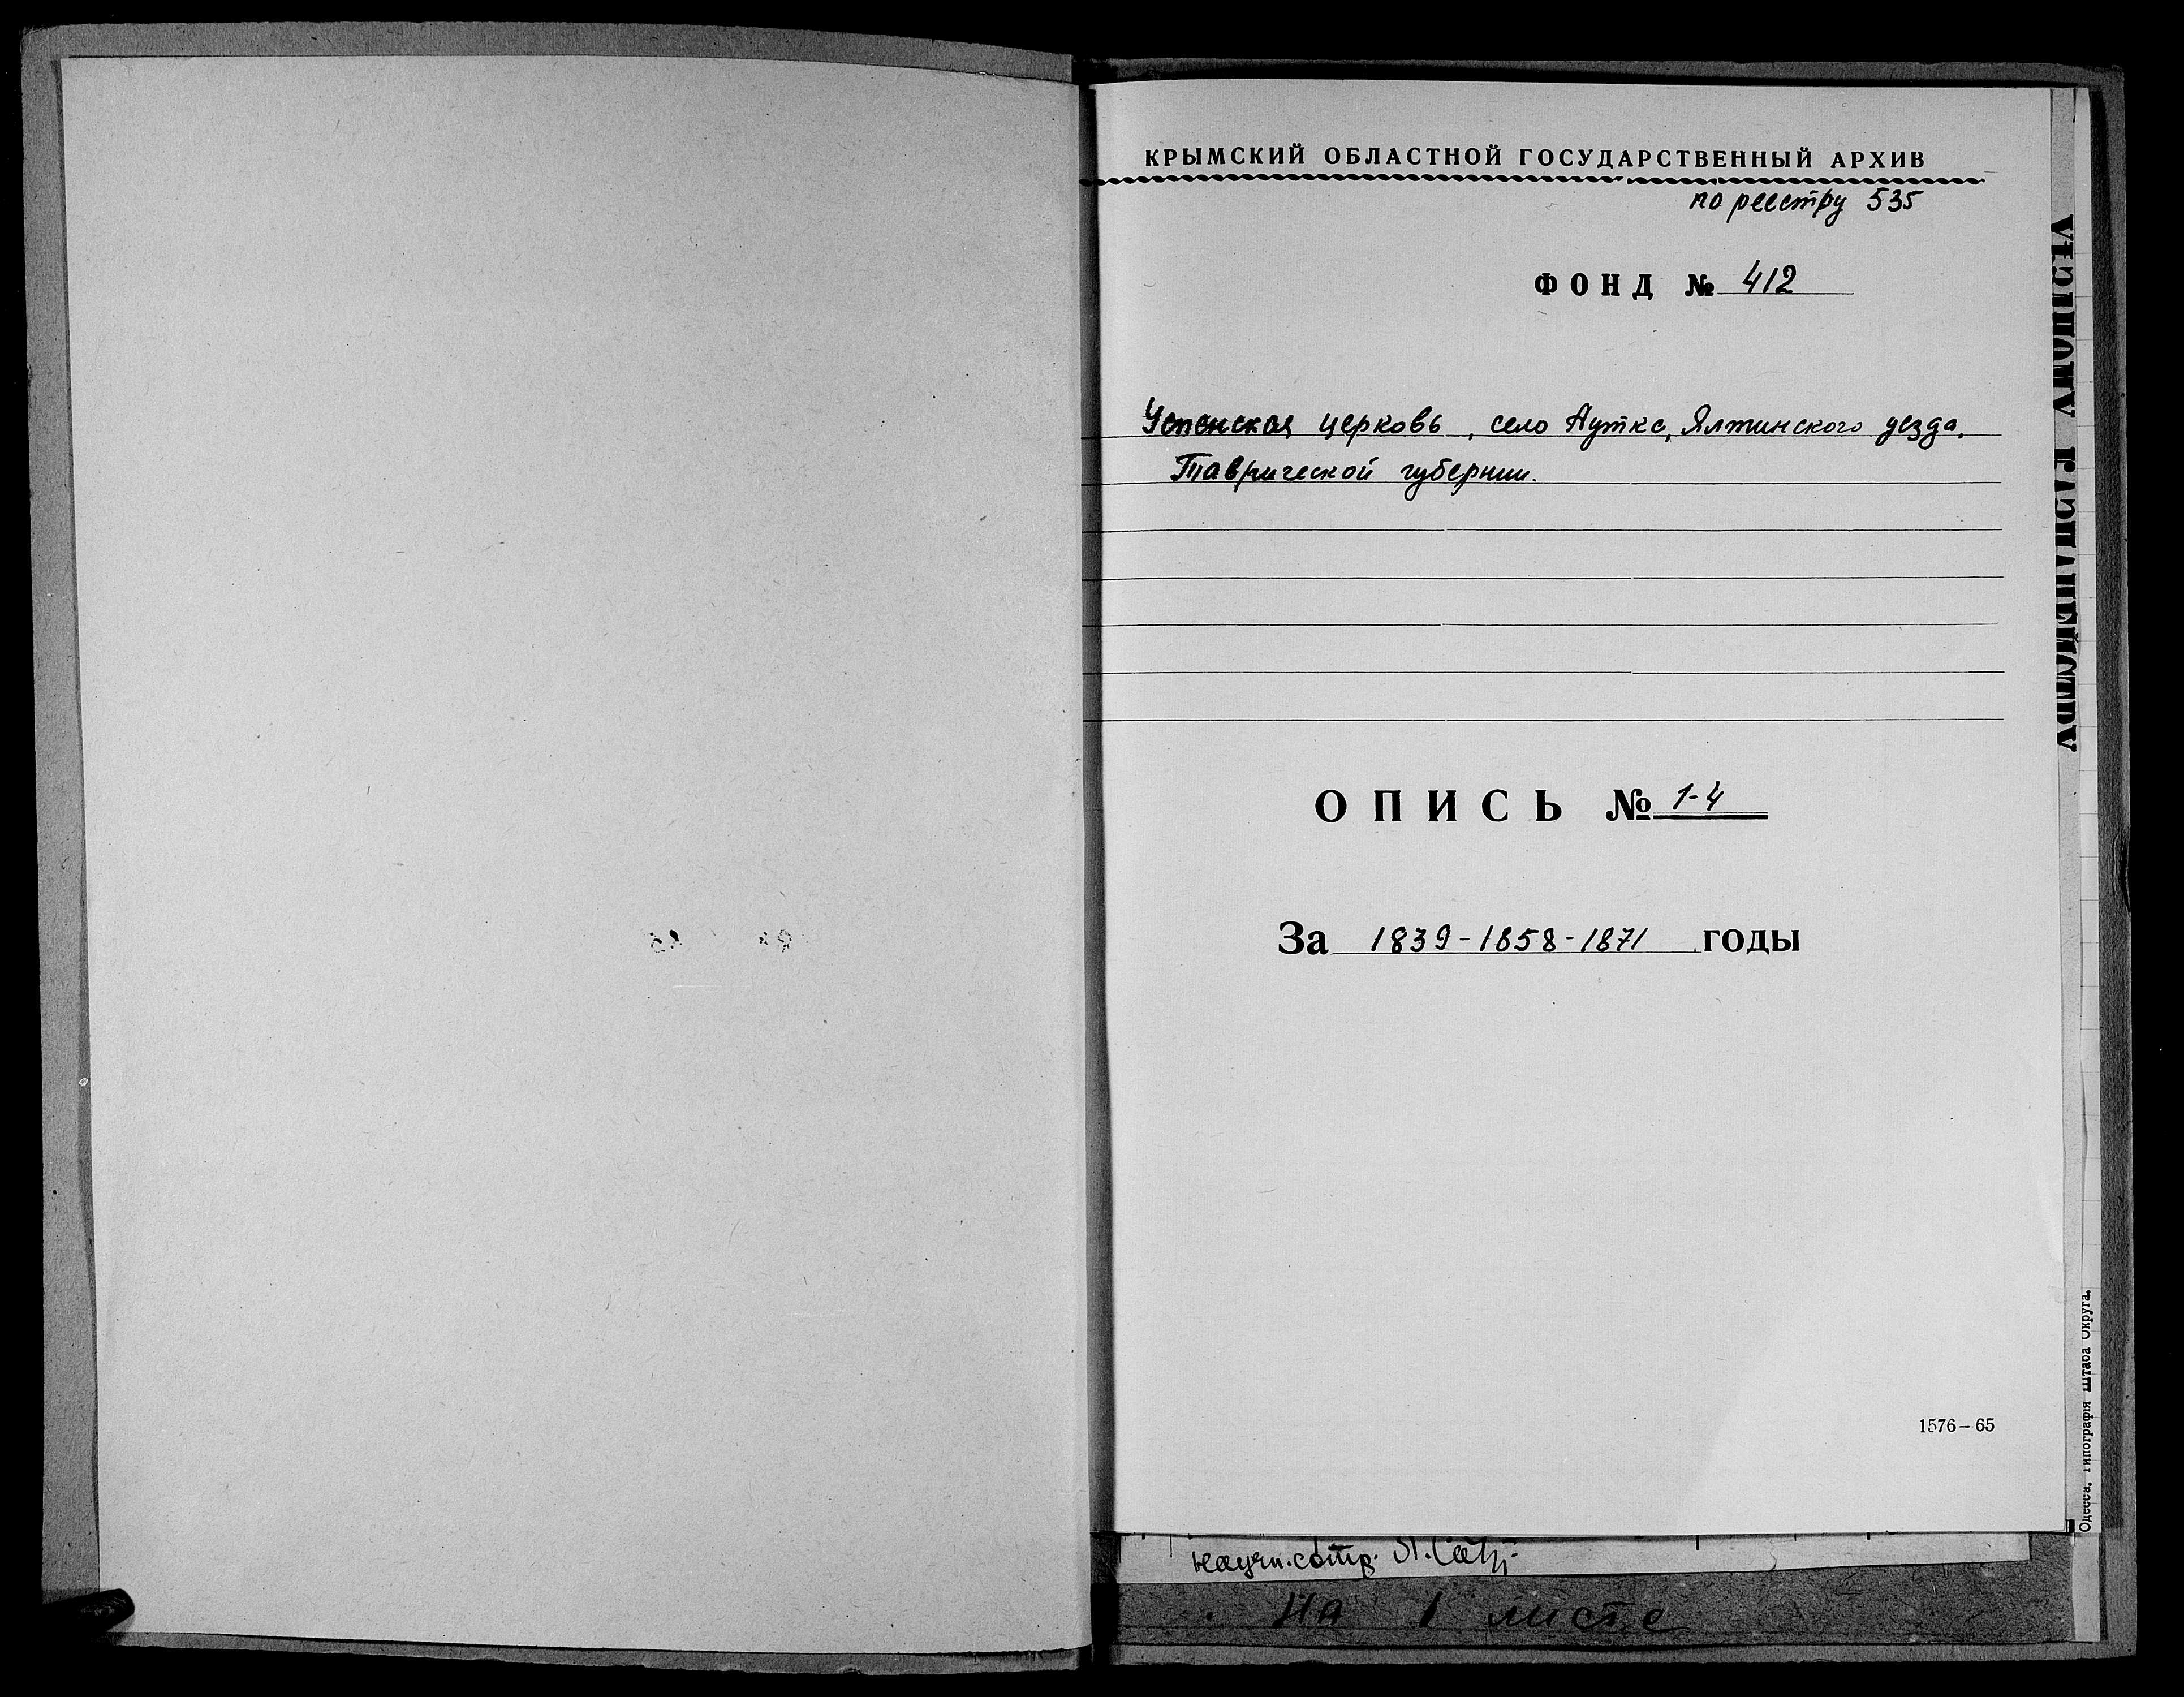 КРЫМСКИЙ ОБЛАСТНОЙ ГОСУДАРСТВЕННЫЙ АРХИВ
по реестру 535
ФОНД № 412
Успенская церковь, село Аутка, Ялтинского уезда,
Таврической губернии.
ОПИСЬ № 1-4
За 1839-1858-1871 годы
1576-65
научн. сотр.
На 1 листе
Одесса. Типографія Штаба Округа.